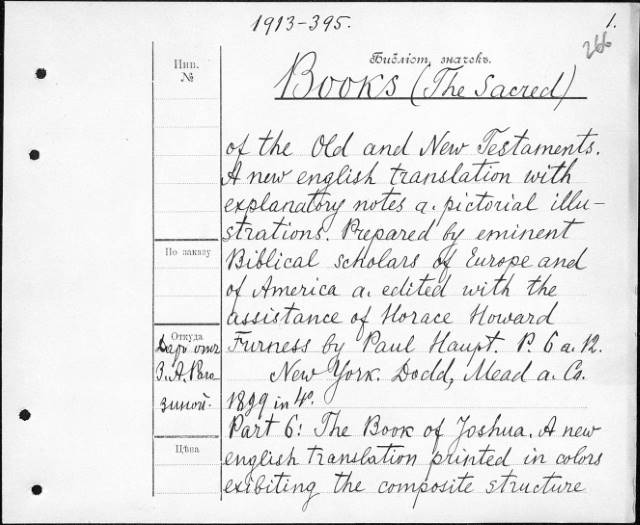 1913-395.
1.
266
Библіот. значекъ.
Инв.
№
Books (The Sacred)
of the Old and New Testaments.
A new english translation with
explanatory notes a. pictorial illu-
strations. Prepared by eminent
По заказу
Biblical scholars of Europe and
of America a. edited with the
assistance of Horace Howard
Откуда
Даръ отъ
З. А. Раго
зиной.
Furness by Paul Haupt. P. 6 a. 12.
New York. Dodd, Mead a. Co.
1899 in 4º.
Part 6: The Book of Joshua. A new
Цѣна
english translation printed in colors
exibiting the composite structure